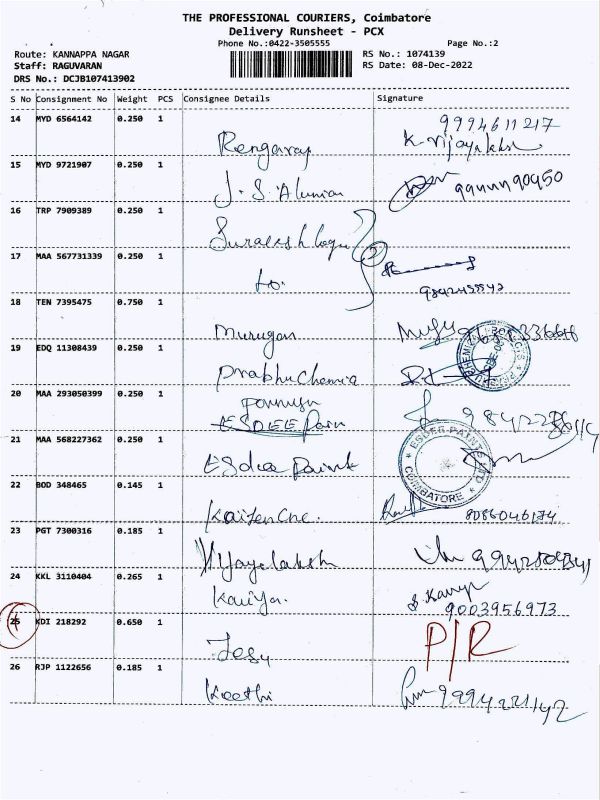 THE PROFESSIONAL COURIERS, Coimbatore
Delivery Runsheet - PCX
Phone No.:0422-3505555 Page No.:2
Route: KANNAPPA NAGAR RS No.: 1074139
Staff: RAGUVARAN RS Date: 08-Dec-2022
DRS No.: DCJB107413902
S No Consignment No Weight PCS Consignee Details Signature
14 MYD 6564142 0.250 1 9994611217
K. Vijayalaksh
15 MYD 9721907 0.250 1
J. S. Aluminium
16 TRP 7909389 0.250 1
17 MAA 567731339 0.250 1
to. 9842455542
18 TEN 7395475 0.750 1
Murugan
19 EDQ 11308439 0.250 1
Prabhu Chemia
20 MAA 293050399 0.250 1
ESDEE Pain
21 MAA 568227362 0.250 1
ESdee Paint
ESDEE PAINTS LTD
COIMBATORE
22 BOD 348465 0.145 1
Kaizen Cnc. 8086046174
23 PGT 7300316 0.185 1
Vijayalaksh
24 KKL 3110404 0.265 1
Kaviya. 9003956973
25 KDI 218292 0.650 1 P/R
Jesu
26 RJP 1122656 0.185 1
Keethi 9994221142